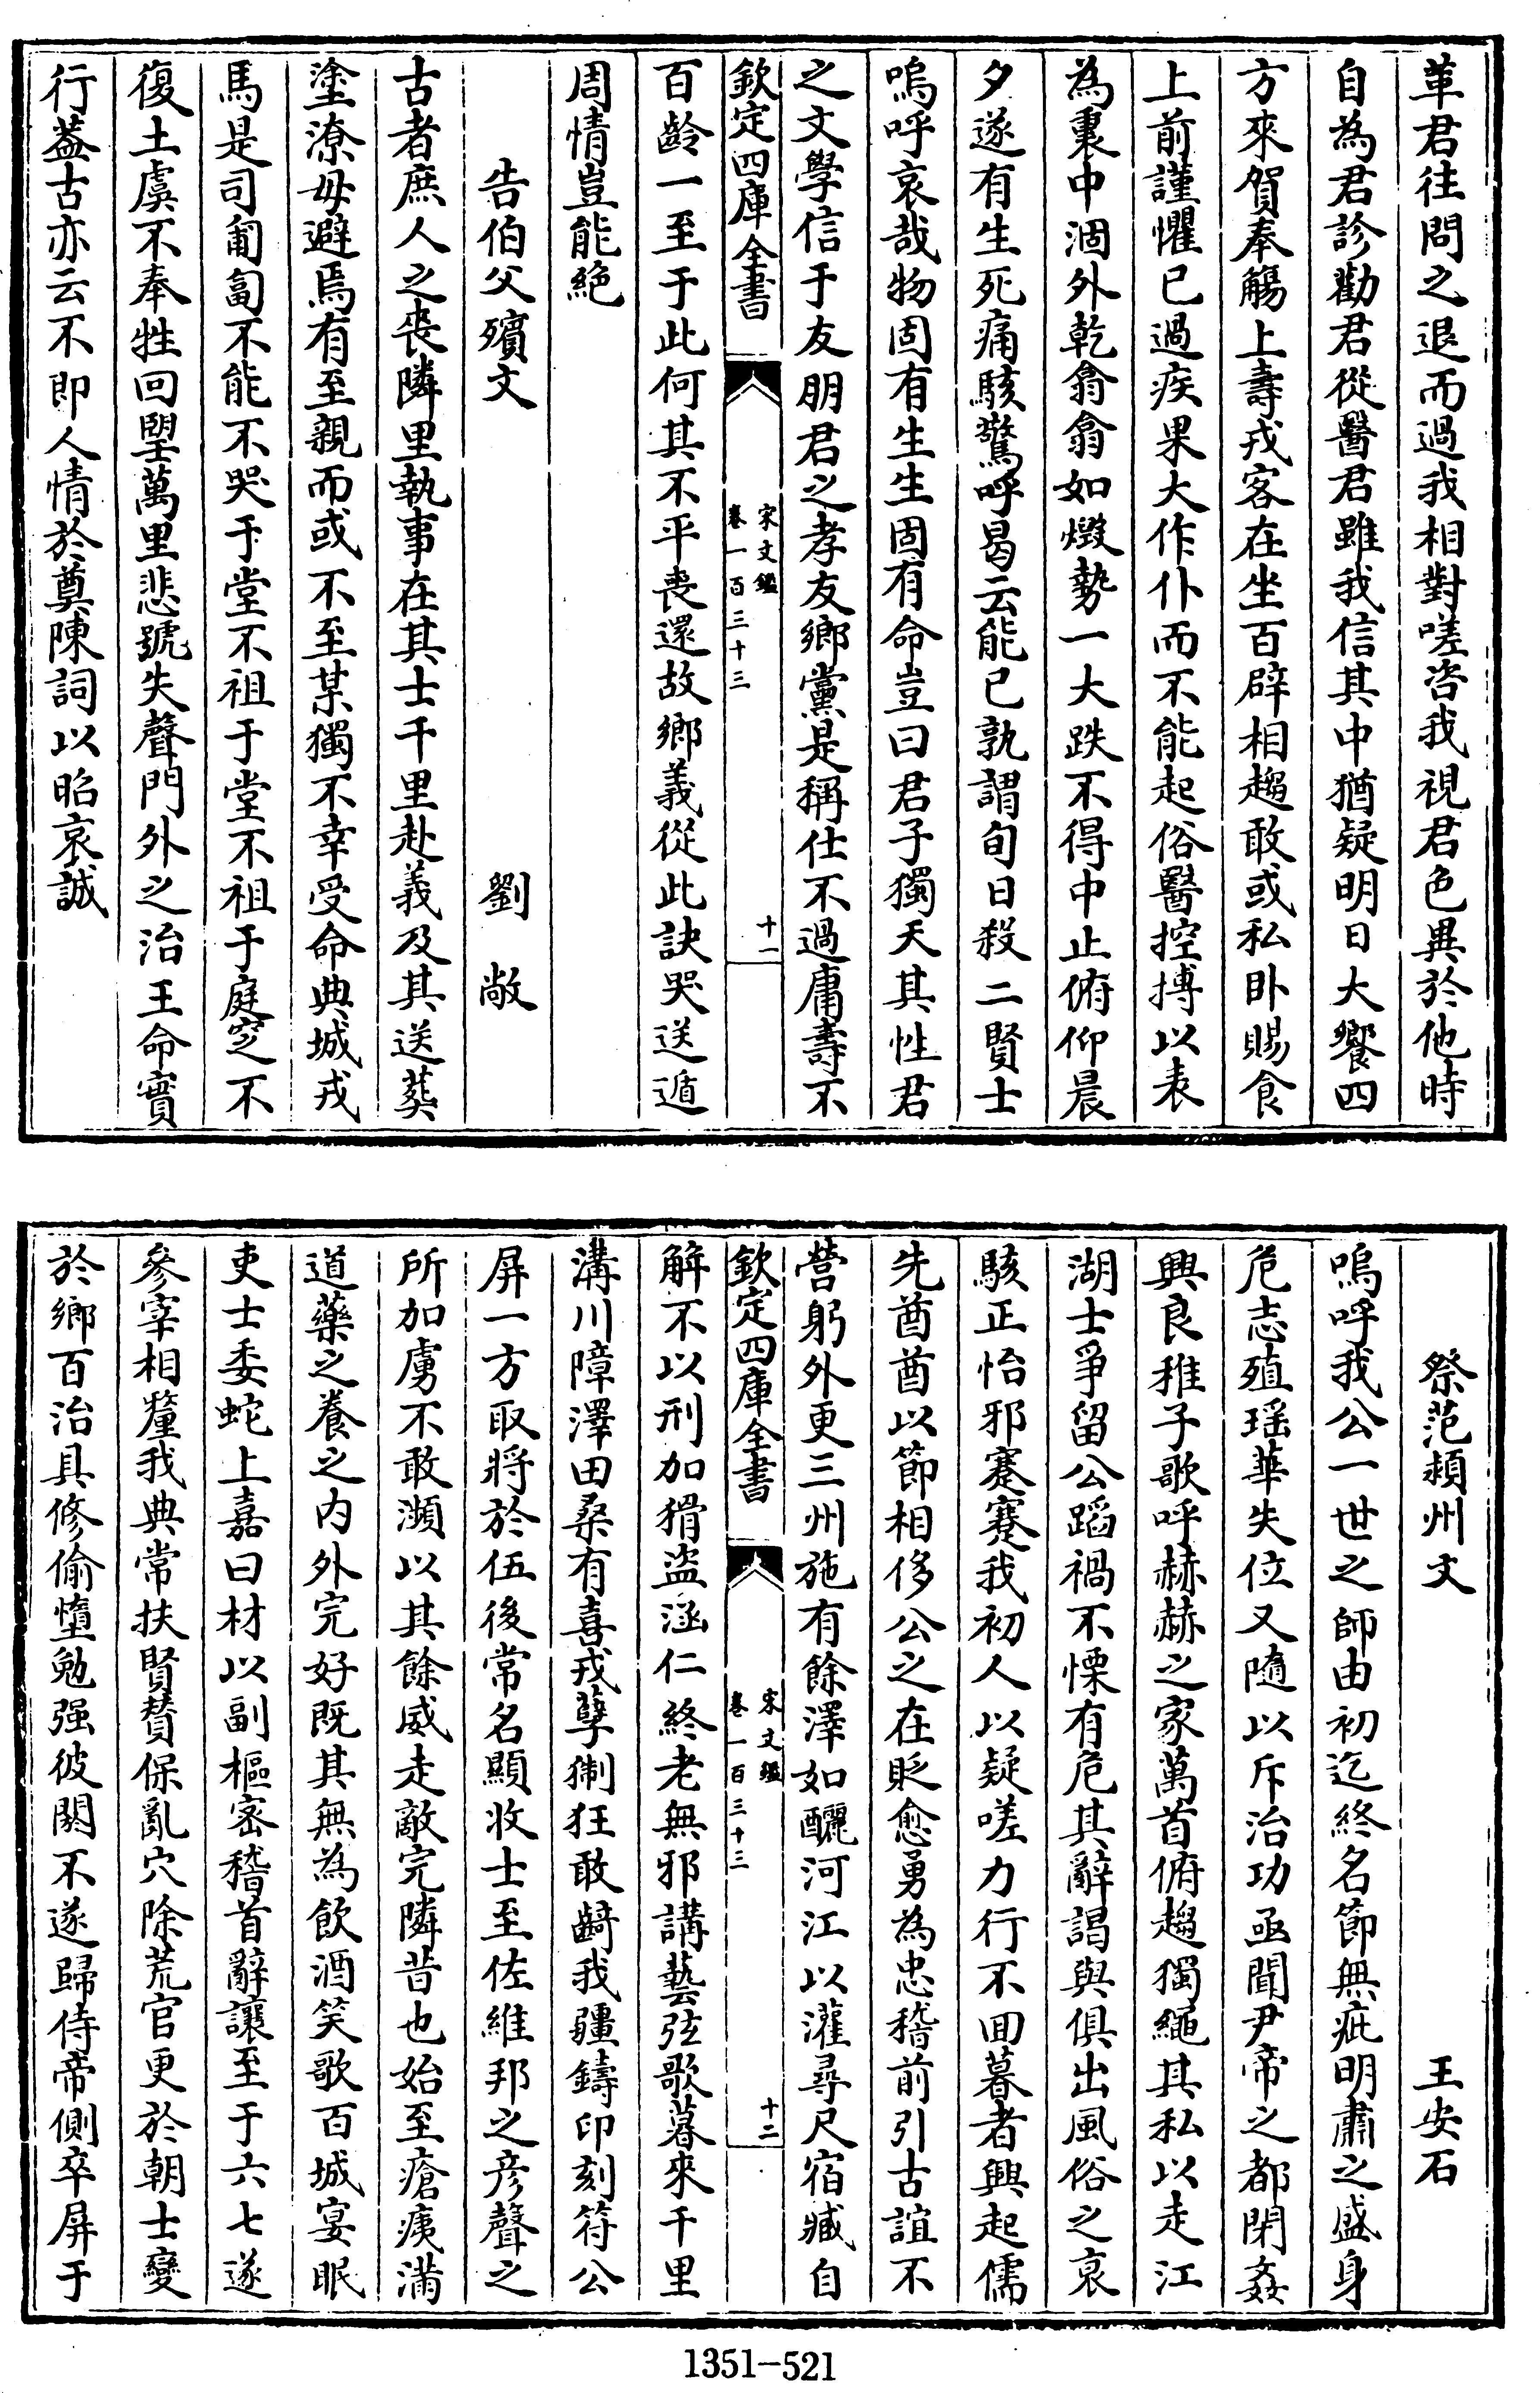 革君往問之退而過我相對嗟咨我視君色異於他時
自為君診勸君從醫君雖我信其中猶疑明日大饗四
方來賀奉觴上壽戎客在坐百辟相趨敢或私卧賜食
上前謹懼已過疾果大作仆而不能起俗醫控搏以表
為裏中涸外乾翕翕如燬勢一大跌不得中止俯仰晨
夕遂有生死痛駭驚呼曷云能已孰謂旬日殺二賢士
嗚呼哀哉物固有生生固有命豈曰君子獨夭其性君
之文學信于友朋君之孝友鄉黨是稱仕不過庸壽不
欽定四庫全書
宋文鑑
卷一百三十三
十一
百齡一至于此何其不平喪還故鄉義從此訣哭送遁
周情豈能絶
告伯父殯文
劉敞
古者庶人之喪隣里執事在其士千里赴義及其送葬
塗潦毋避焉有至親而或不至某獨不幸受命典城戎
馬是司匍匐不能不哭于堂不祖于堂不祖于庭窆不
復土虞不奉牲回望萬里悲號失聲門外之治王命實
行葢古亦云不即人情於奠陳詞以昭哀誠
祭范潁州文
王安石
嗚呼我公一世之師由初迄終名節無疵明肅之盛身
危志殖瑶華失位又隨以斥治功亟聞尹帝之都閉姦
興良稚子歌呼赫赫之家萬首俯趨獨繩其私以走江
湖士爭留公蹈禍不慄有危其辭謁與俱出風俗之衰
駭正怡邪蹇蹇我初人以疑嗟力行不囬暮者興起儒
先酋酋以節相侈公之在貶愈勇為忠稽前引古誼不
營躬外更三州施有餘澤如釃河江以灌尋尺宿臧自
欽定四庫全書
宋文鑑
卷一百三十三
十二
解不以刑加猾盜涵仁終老無邪講藝弦歌暮來千里
溝川障澤田桑有喜戎孽猘狂敢齮我疆鑄印刻符公
屏一方取將於伍後常名顯收士至佐維邦之彦聲之
所加虜不敢瀕以其餘威走敵完隣昔也始至瘡痍滿
道藥之養之内外完好既其無為飲酒笑歌百城宴眠
吏士委蛇上嘉曰材以副樞宻稽首辭讓至于六七遂
參宰相釐我典常扶賢賛保亂穴除荒官更於朝士變
於鄉百治具修偷惰勉强彼閼不遂歸侍帝側卒屏于
1351-521